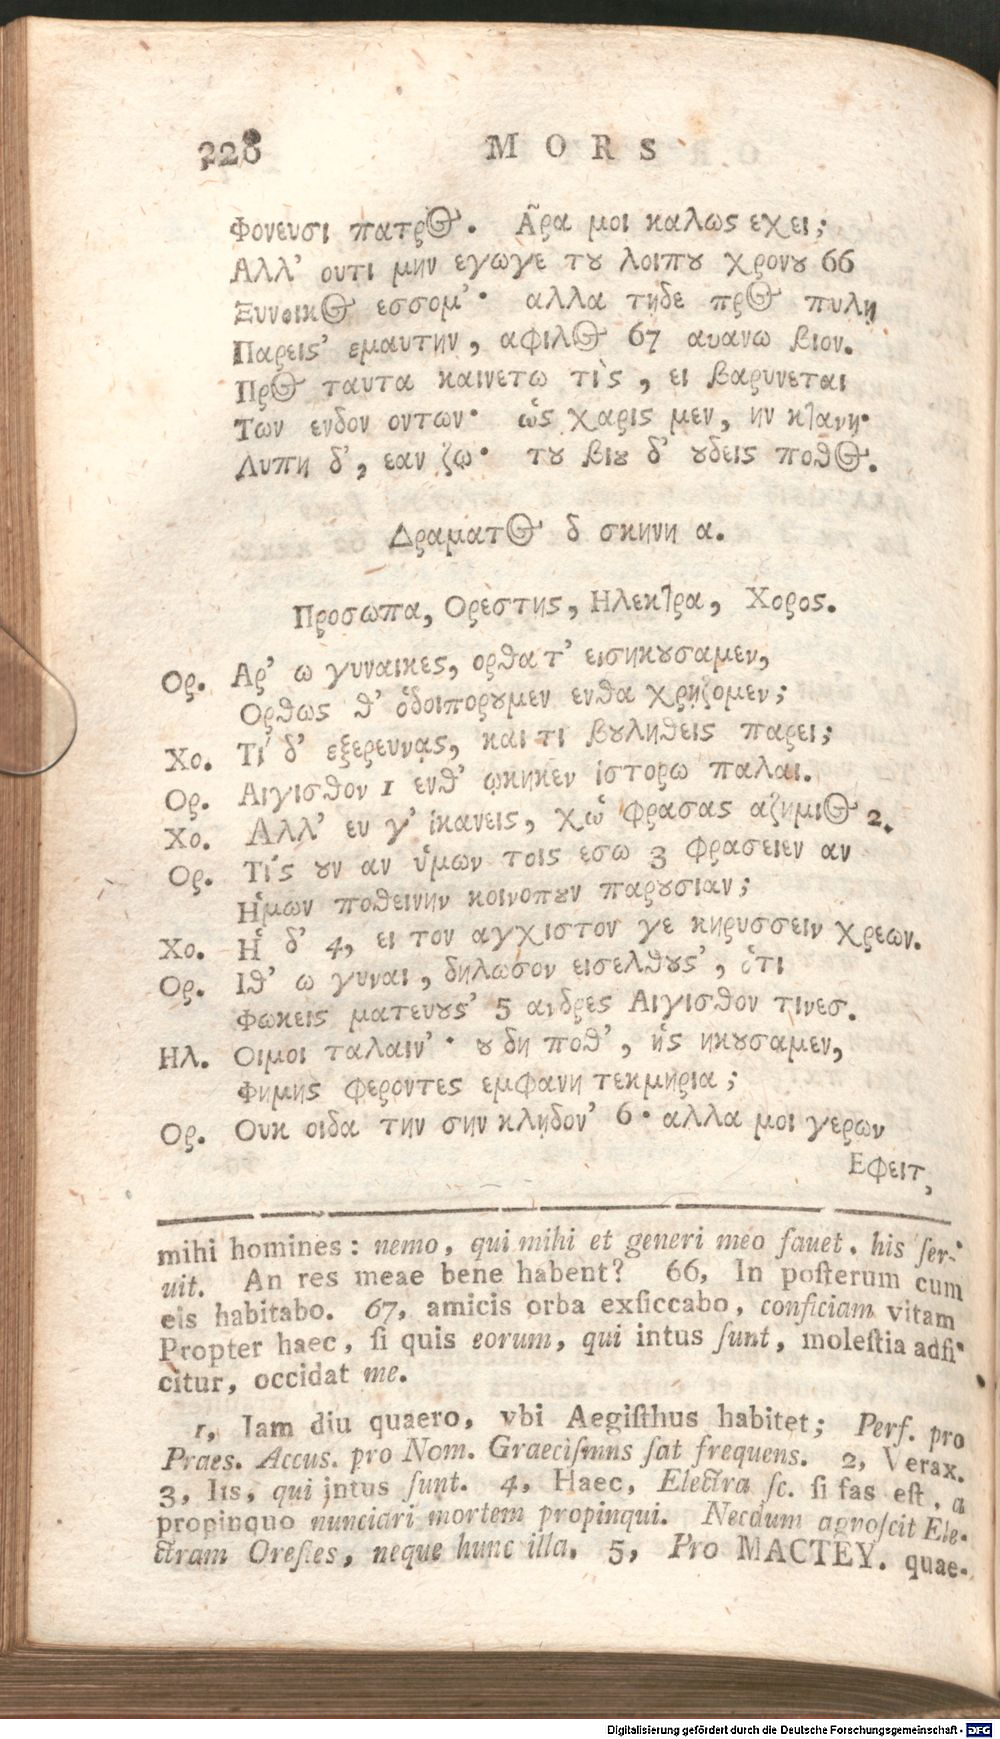 228 MORS
Φονευσι πατρος. Ἆρα μοι καλως εχει;
Αλλ' ουτι μην εγωγε τȣ λοιπȣ χρονȣ 66
Ξυνοικος εσσομ'· αλλα τηδε προς πυλῃ
Παρεις' εμαυτην, αφιλος 67 αυανω βιον.
Προς ταυτα καινετω τὶς, ει βαρυνεται
Των ενδον οντων· ὡς χαρις μεν, ην κτανη·
Λυπη δ', εαν ζω· τȣ βιȣ δ' ȣδεις ποθος.
Δραματος δ σκηνη α.
Προσωπα, Ορεστης, Ηλεκτρα, Χορος.
Ορ. Αρ' ω γυναικες, ορθα τ' εισηκȣσαμεν,
Ορθως θ' ὁδοιπορȣμεν ενθα χρῃζομεν;
Χο. Τί δ' εξερευνᾳς, και τι βȣληθεις παρει;
Ορ. Αιγισθον 1 ενθ' ῳκηκεν ἱστορω παλαι.
Χο. Αλλ' ευ γ' ἱκανεις, χὠ φρασας αζημιος 2.
Ορ. Τίς ȣν αν ὑμων τοις εσω 3 φρασειεν αν
Ἡμων ποθεινην κοινοπȣν παρȣσιαν;
Χο. Ἡ δ' 4, ει τον αγχιστον γε κηρυσσειν χρεων.
Ορ. Ιθ' ω γυναι, δηλωσον εισελθȣς', ὁτι
Φωκεις ματευȣς' 5 ανδρες Αιγισθον τινεσ.
Ηλ. Οιμοι ταλαιν'· ȣ δη ποθ', ἡς ηκȣσαμεν,
Φημης φεροντες εμφανη τεκμηρια;
Ορ. Ουκ οιδα την σην κλῃδον' 6· αλλα μοι γερων
Εφειτ,
mihi homines: nemo, qui mihi et generi meo fauet. his ſer-
uit. An res meae bene habent? 66, In poſterum cum
eis habitabo. 67, amicis orba exſiccabo, conficiam vitam
Propter haec, ſi quis eorum, qui intus ſunt, moleſtia adfi-
citur, occidat me.
1, Iam diu quaero, vbi Aegiſthus habitet; Perf. pro
Praes. Accus. pro Nom. Graeciſmns ſat frequens. 2, Verax.
3, Iis, qui intus ſunt. 4, Haec, Electra ſc. ſi fas eſt, a
propinquo nunciari mortem propinqui. Necdum agnoſcit Ele-
ctram Oreſtes, neque hunc illa. 5, Pro ΜΑCΤΕΥ. quae-
Digitalisierung gefördert durch die Deutsche Forschungsgemeinschaft - DFG